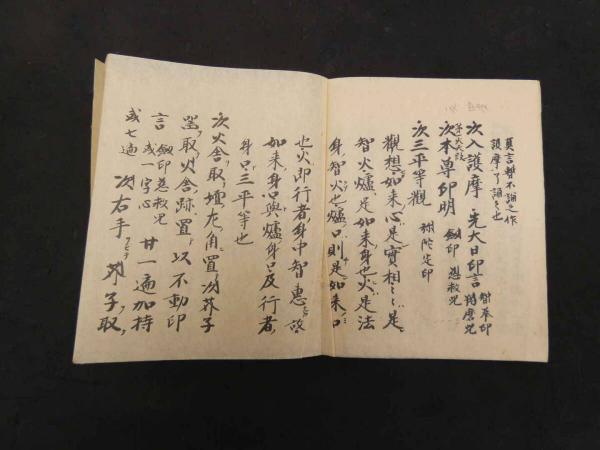 真言暫不誦之作
護摩了誦之也
次入護摩 先大日印言 智拳印 羯磨咒
次本尊印明 劔印 慈救咒
次三平等観 弥陀定印
観想如来心是實相々々是
智火爐是如来身也火是法
身智火也爐口則是如来口
也火即行者身中智惠故
如来身口與爐身口及行者
身口三平等也
次火舎取壇左角置次芥子
器取火舎跡置以不動印
言 劔印慈救咒 或一字心 廿一遍加持
或七遍 次右手芥子取